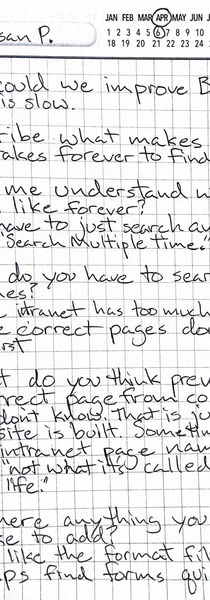 JAN FEB MAR APR MAY JUN J
san P.
1 2 3 4 5 6 7 8 9 10
18 19 20 21 22 23 24 25
could we improve B
is slow.
ribe what makes
akes forever to find
me understand w
like forever?
have to just search an
Search Multiple time."
do you have to sear
mes?
intranet has too much
e correct pages don
rst
t do you think prev
rrect page from co
don't know. That is ju
site is built. Sometim
intranet page nam
"not what it's called
life."
here anything you
ke to add?
like the format fil
ps find forms qui